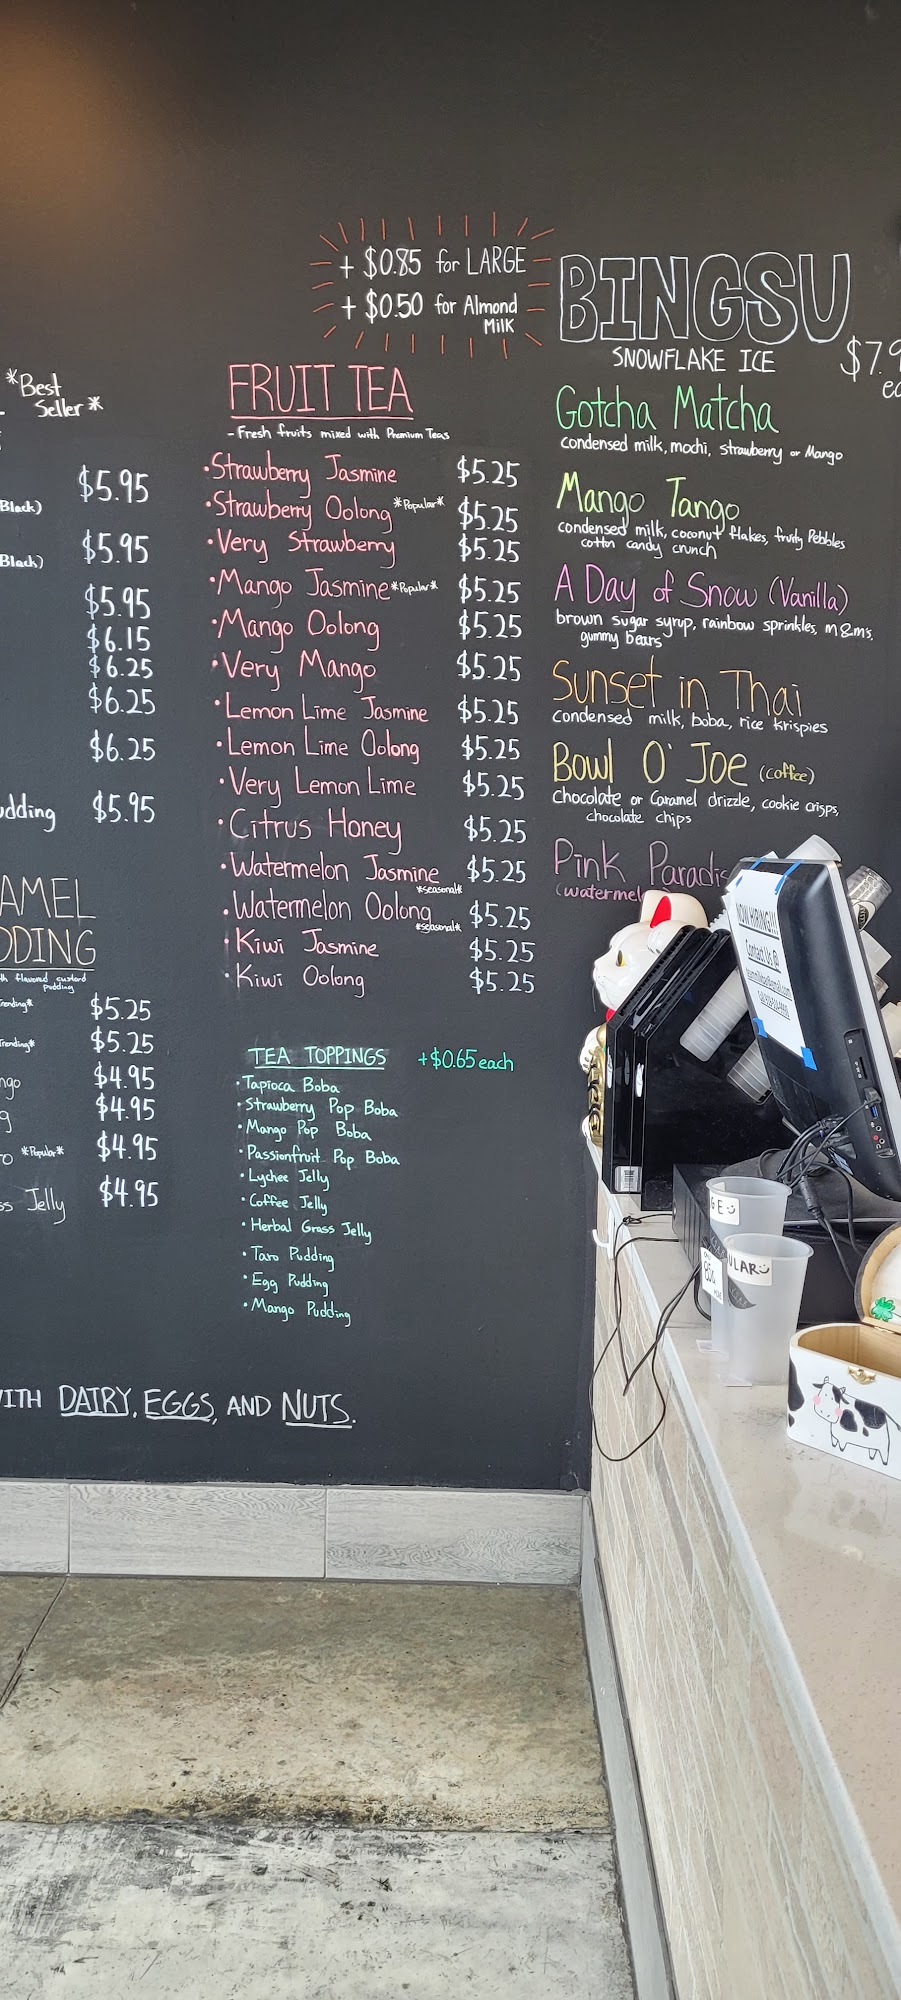 + $0.85 for LARGE
+ $0.50 for Almond
MILK
*Best
Seller*
$5.95
Black)
$5.95
Black)
$5.95
$6.15
$6.25
$6.25
$6.25
udding $5.95
AMEL
DDING
th flavored custard
pudding
rending* $5.25
Trending* $5.25
ngo $4.95
g $4.95
ro *Popular* $4.95
ss Jelly $4.95
FRUIT TEA
- Fresh fruits mixed with Premium Teas
• Strawberry Jasmine $5.25
• Strawberry Oolong *Popular* $5.25
• Very Strawberry $5.25
• Mango Jasmine *Popular* $5.25
• Mango Oolong $5.25
• Very Mango $5.25
• Lemon Lime Jasmine $5.25
• Lemon Lime Oolong $5.25
• Very Lemon Lime $5.25
• Citrus Honey $5.25
• Watermelon Jasmine $5.25
*seasonal*
• Watermelon Oolong $5.25
*seasonal*
• Kiwi Jasmine $5.25
• Kiwi Oolong $5.25
TEA TOPPINGS +$0.65 each
• Tapioca Boba
• Strawberry Pop Boba
• Mango Pop Boba
• Passionfruit Pop Boba
• Lychee Jelly
• Coffee Jelly
• Herbal Grass Jelly
• Taro Pudding
• Egg Pudding
• Mango Pudding
WITH DAIRY, EGGS, AND NUTS.
BINGSU
SNOWFLAKE ICE
$7.9
ea
Gotcha Matcha
condensed milk, mochi, strawberry or Mango
Mango Tango
condensed milk, coconut flakes, fruity Pebbles
cotton candy crunch
A Day of Snow (Vanilla)
brown sugar syrup, rainbow sprinkles, m&m's,
gummy bears
Sunset in Thai
condensed milk, boba, rice krispies
Bowl O' Joe (coffee)
Chocolate or Caramel drizzle, cookie crisps,
chocolate chips
Pink Paradis
(watermel
NOW HIRING!!!
Contact Us @
GE
ULAR
85¢